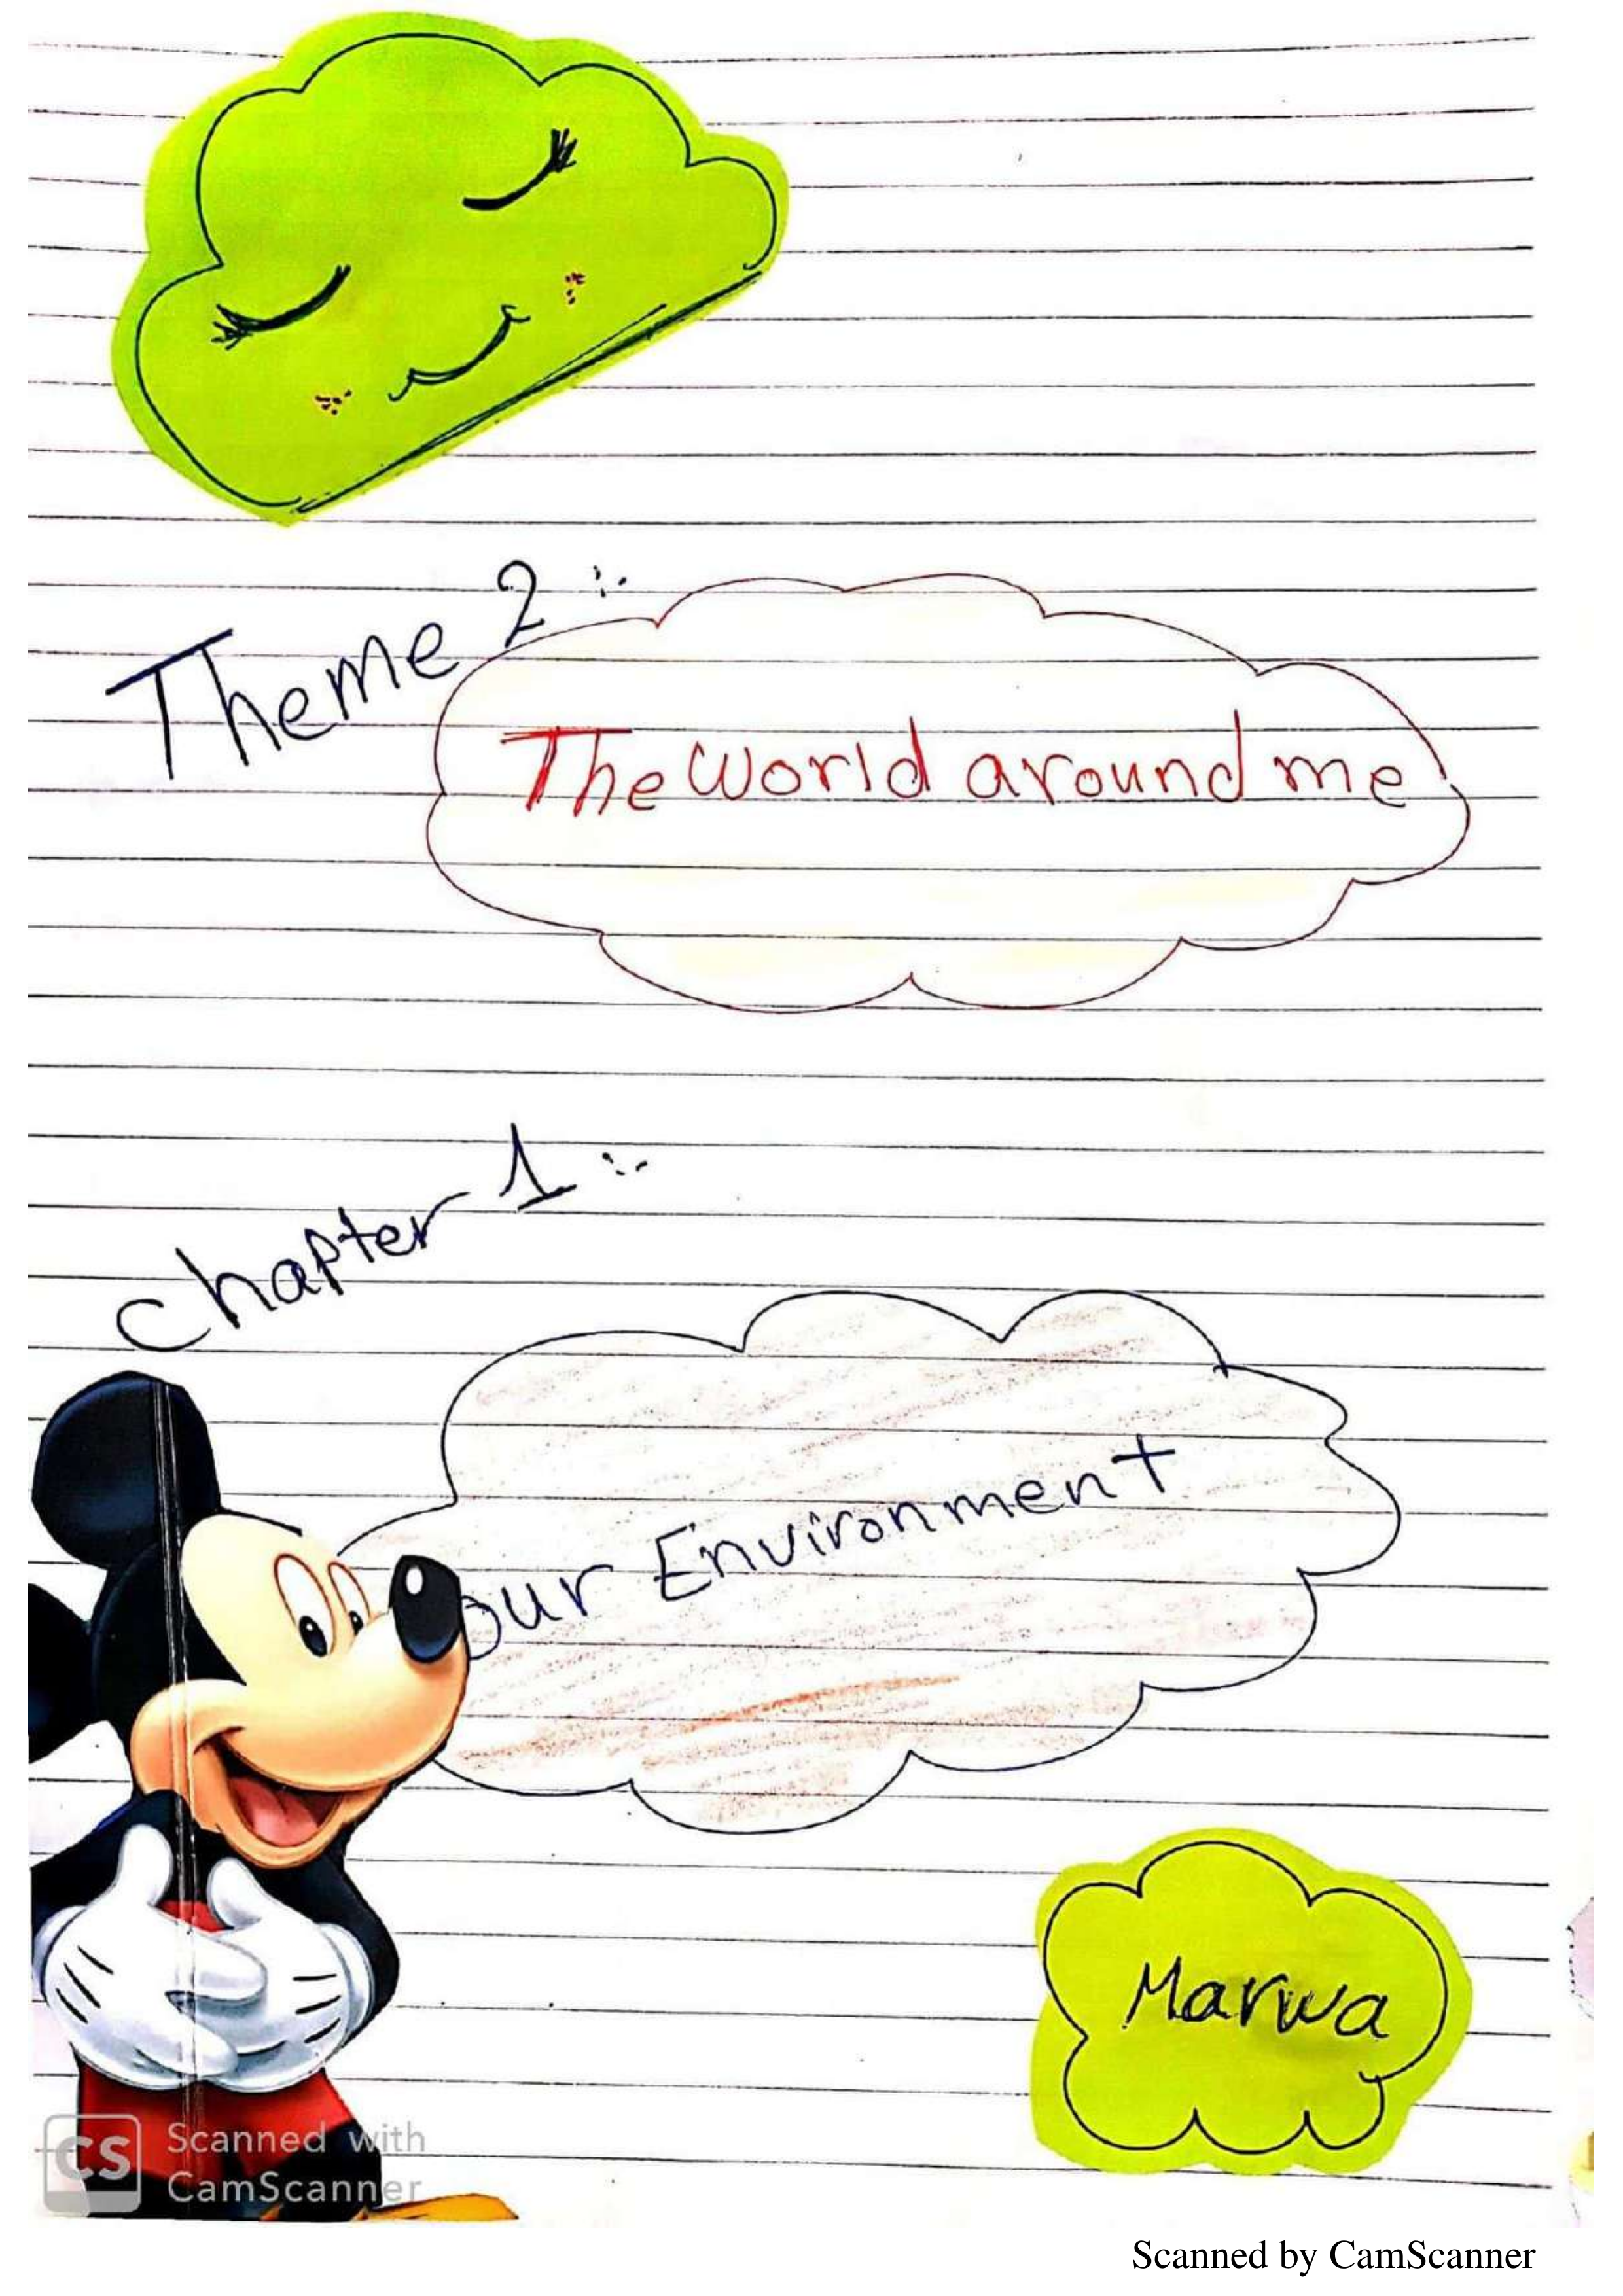 Theme 2 :-
The world around me
chapter 1 :-
our Environment
Marwa
CS
Scanned with
CamScanner
Scanned by CamScanner